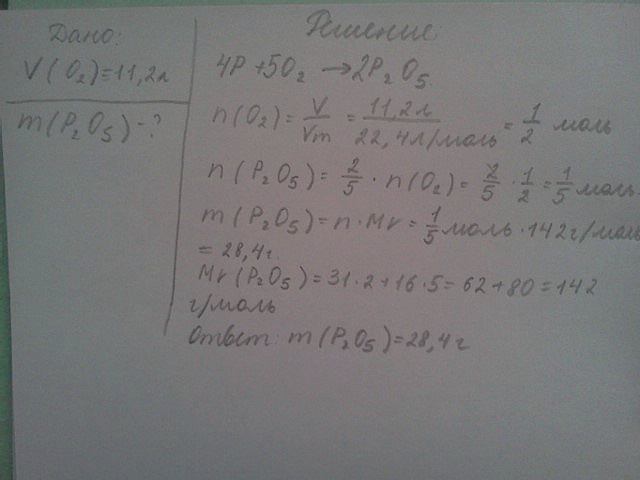 Дано:
V(O₂)=11,2л
m(P₂O₅)-?
Решение:
4P+5O₂→2P₂O₅
n(O₂)=V/Vm=11,2л/22,4л/моль=1/2 моль
n(P₂O₅)=2/5·n(O₂)=2/5·1/2=1/5 моль
m(P₂O₅)=n·Mr=1/5 моль·142г/моль
=28,4г.
Mr(P₂O₅)=31·2+16·5=62+80=142
г/моль
Ответ: m(P₂O₅)=28,4г